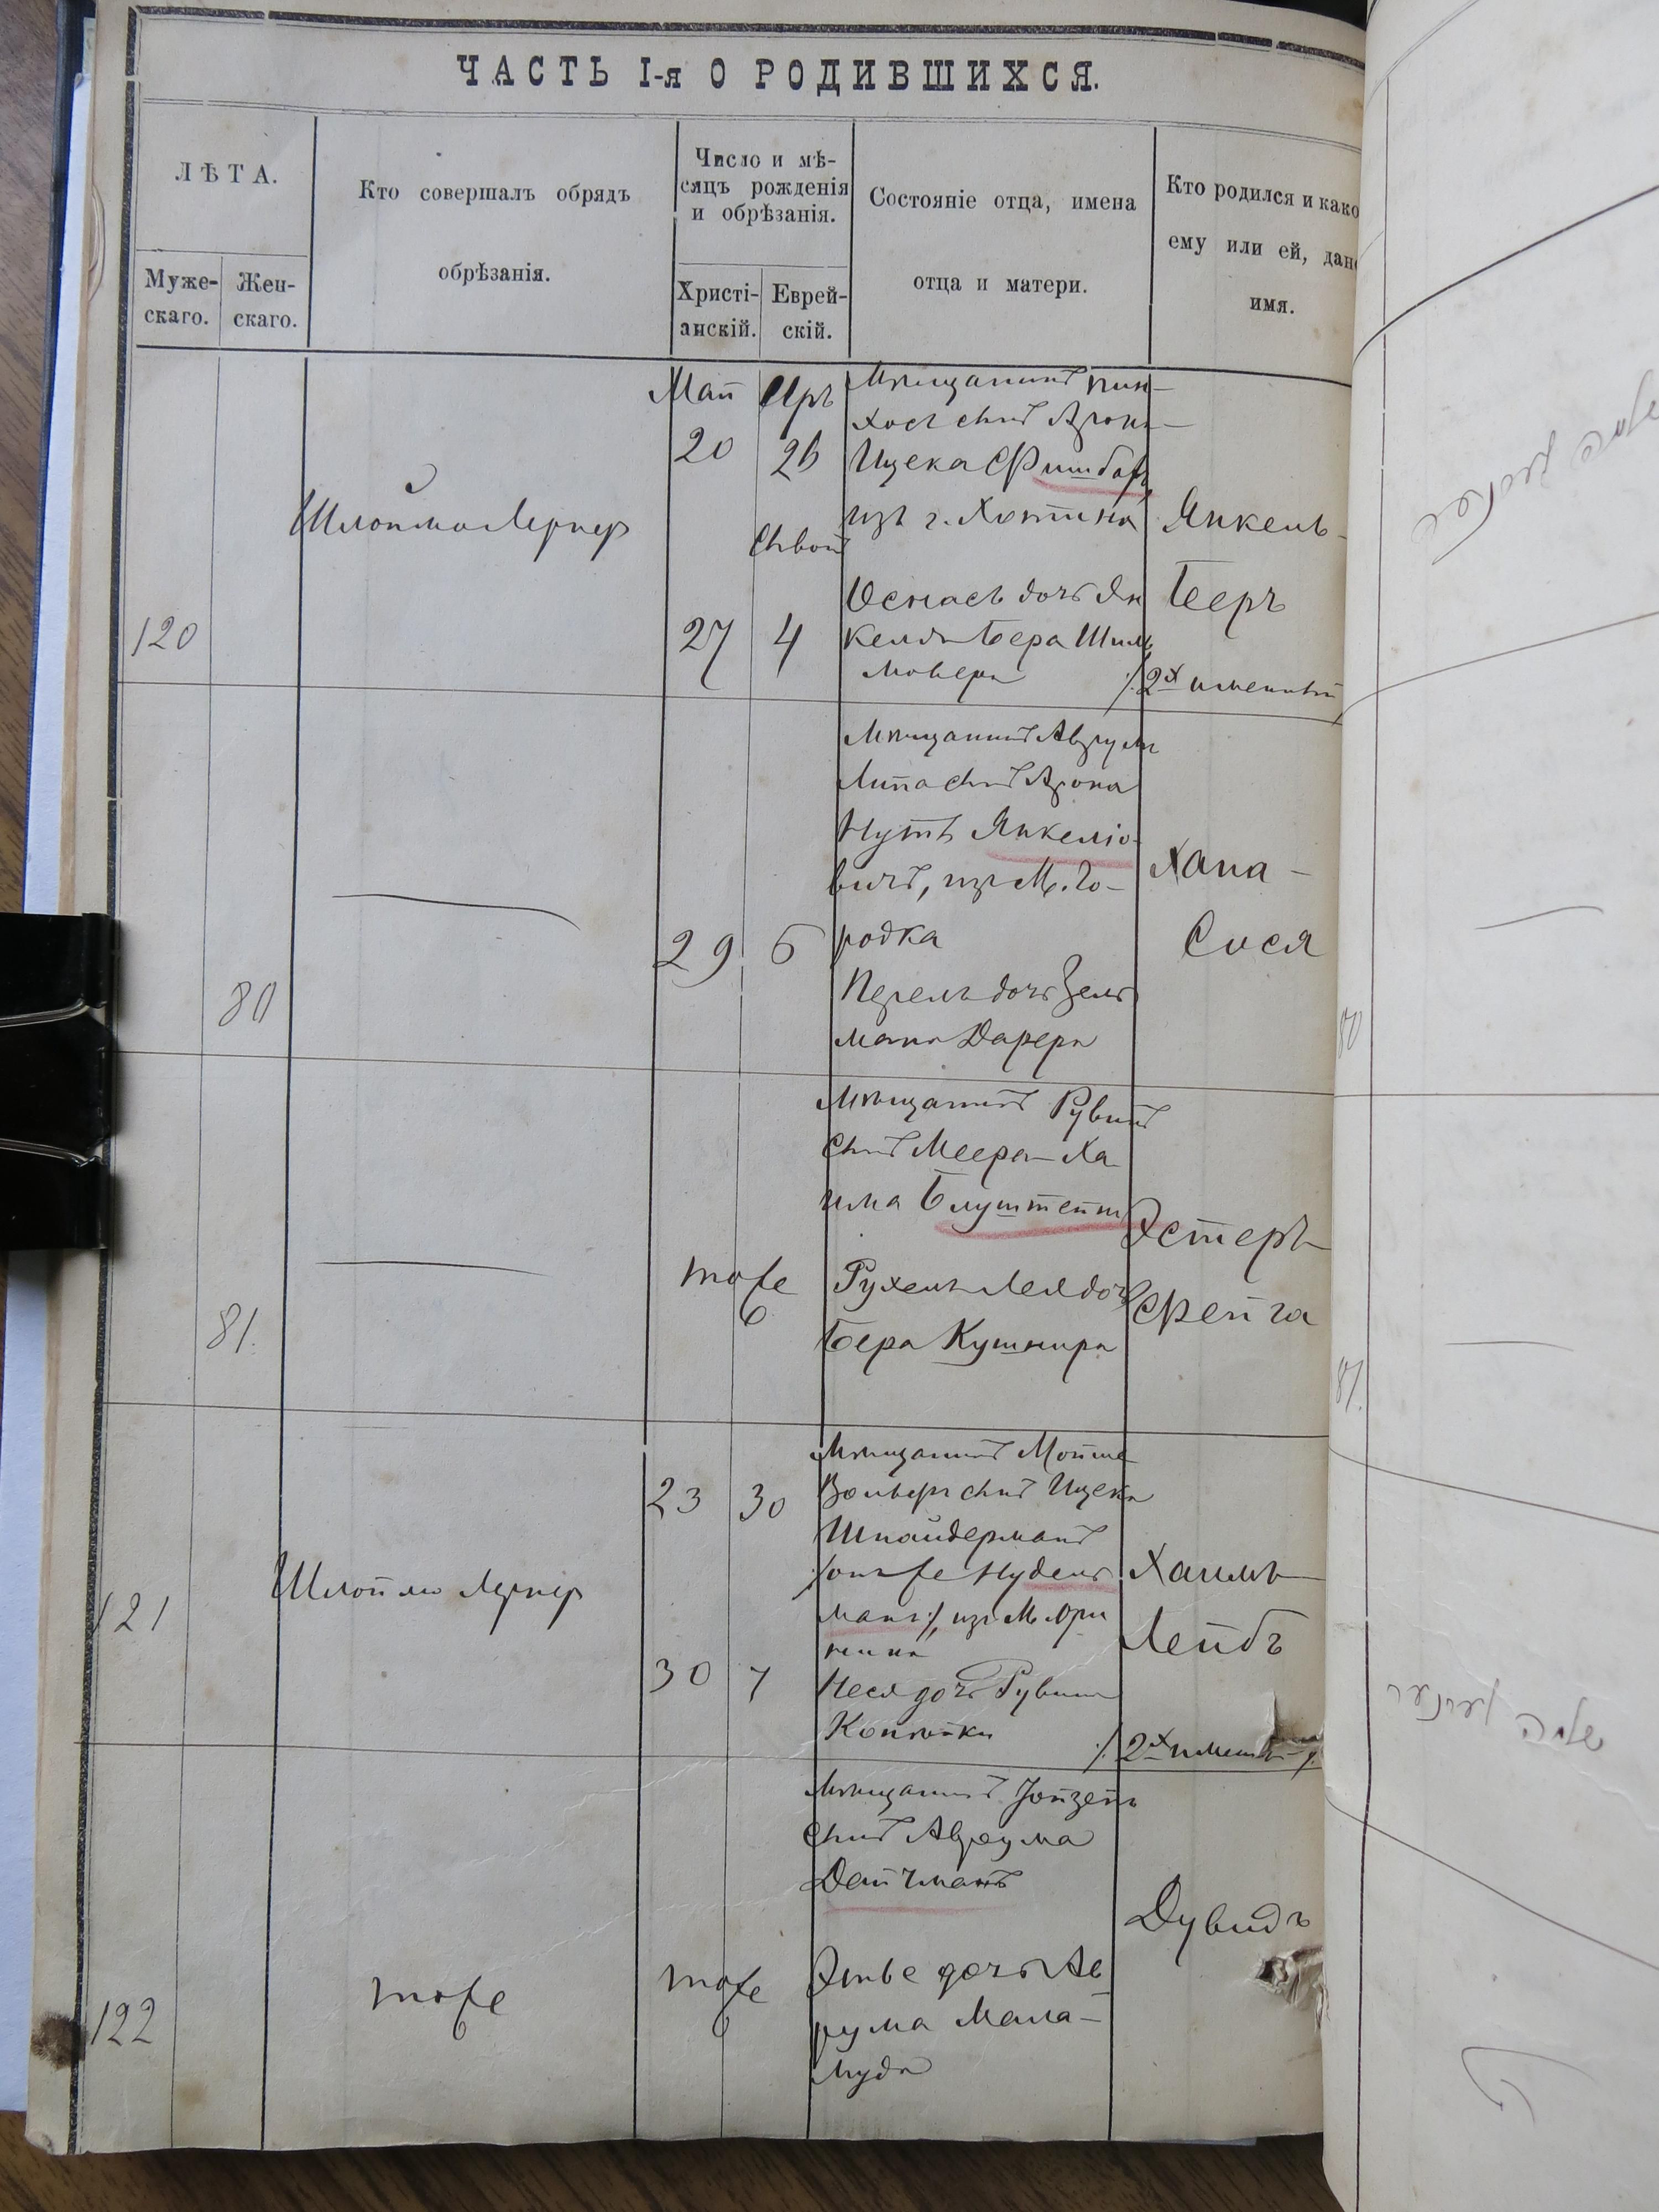 ЧАСТЬ I-я О РОДИВШИХСЯ.
ЛѢТА.
Муже-
скаго.
Жен-
скаго.
Кто совершалъ обрядъ
обрѣзанія.
Число и мѣ-
сяцъ рожденія
и обрѣзанія.
Христі-
анскій.
Еврей-
скій.
Состояніе отца, имена
отца и матери.
Кто родился и како
ему или ей, дан
имя.
120
Шлойма Лернеръ
Май
20
27
Иръ
26
Сивон
4
Мѣщанинъ Пин-
хосъ сынъ Арона-
Ицека Фишбахъ
изъ г. Хотина
Оснась дочь Ян
келя Бера Шмиль
Янкель-
Беръ
2х именный
80
29
6
Мѣщанинъ Аврумъ
Липа сынъ Арона
Нутъ Янкеліо-
вичъ, изъ М. Го-
родка
Перель дочь Зель
мана Дарера
Хана-
Сося
81.
тоже
Мѣщанинъ Рувинъ
сынъ Меера-Ха
има Блуштейнъ
Рухель Лея дочь
Бера Кушнира
Эстеръ-
Фейга
121
Шлойма Лернеръ
23
30
30
7
Мѣщанинъ Мойше
Вольвъ сынъ Ицека
Шпайдерманъ
онъ же Нудель
манъ, изъ М. Ори
нина
Неся дочь Рувина
Копыйки
Хаимъ-
Лейбъ
2х имен
122
тоже
тоже
Мѣщанинъ Іойзепъ
сынъ Аврума
Дейчманъ
Этье дочь Ав
рума Мала-
муда
Дувидъ
80
81.